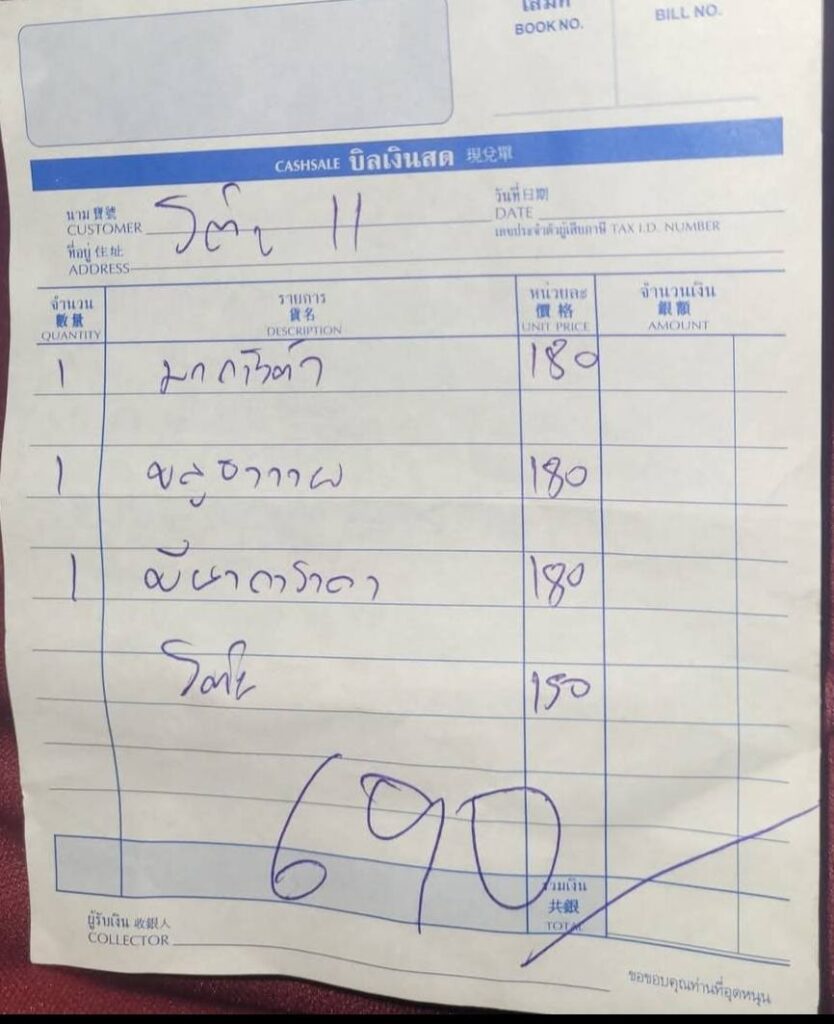 เล่มที่
BOOK NO.
BILL NO.
CASHSALE บิลเงินสด 現兌單
นาม 寶號
CUSTOMER โต๊ะ 11
วันที่ 日期
DATE
ที่อยู่ 住址
ADDRESS
เลขประจำตัวผู้เสียภาษี TAX I.D. NUMBER
จำนวน รายการ หน่วยละ จำนวนเงิน
數量 貨名 價格 銀額
QUANTITY DESCRIPTION UNIT PRICE AMOUNT
1 มาการิต้า 180
1 บลูฮาวาย 180
1 พีน่าโคลาดา 180
150
690
รวมเงิน
共銀
TOTAL
ผู้รับเงิน 收銀人
COLLECTOR
ขอขอบคุณท่านที่อุดหนุน